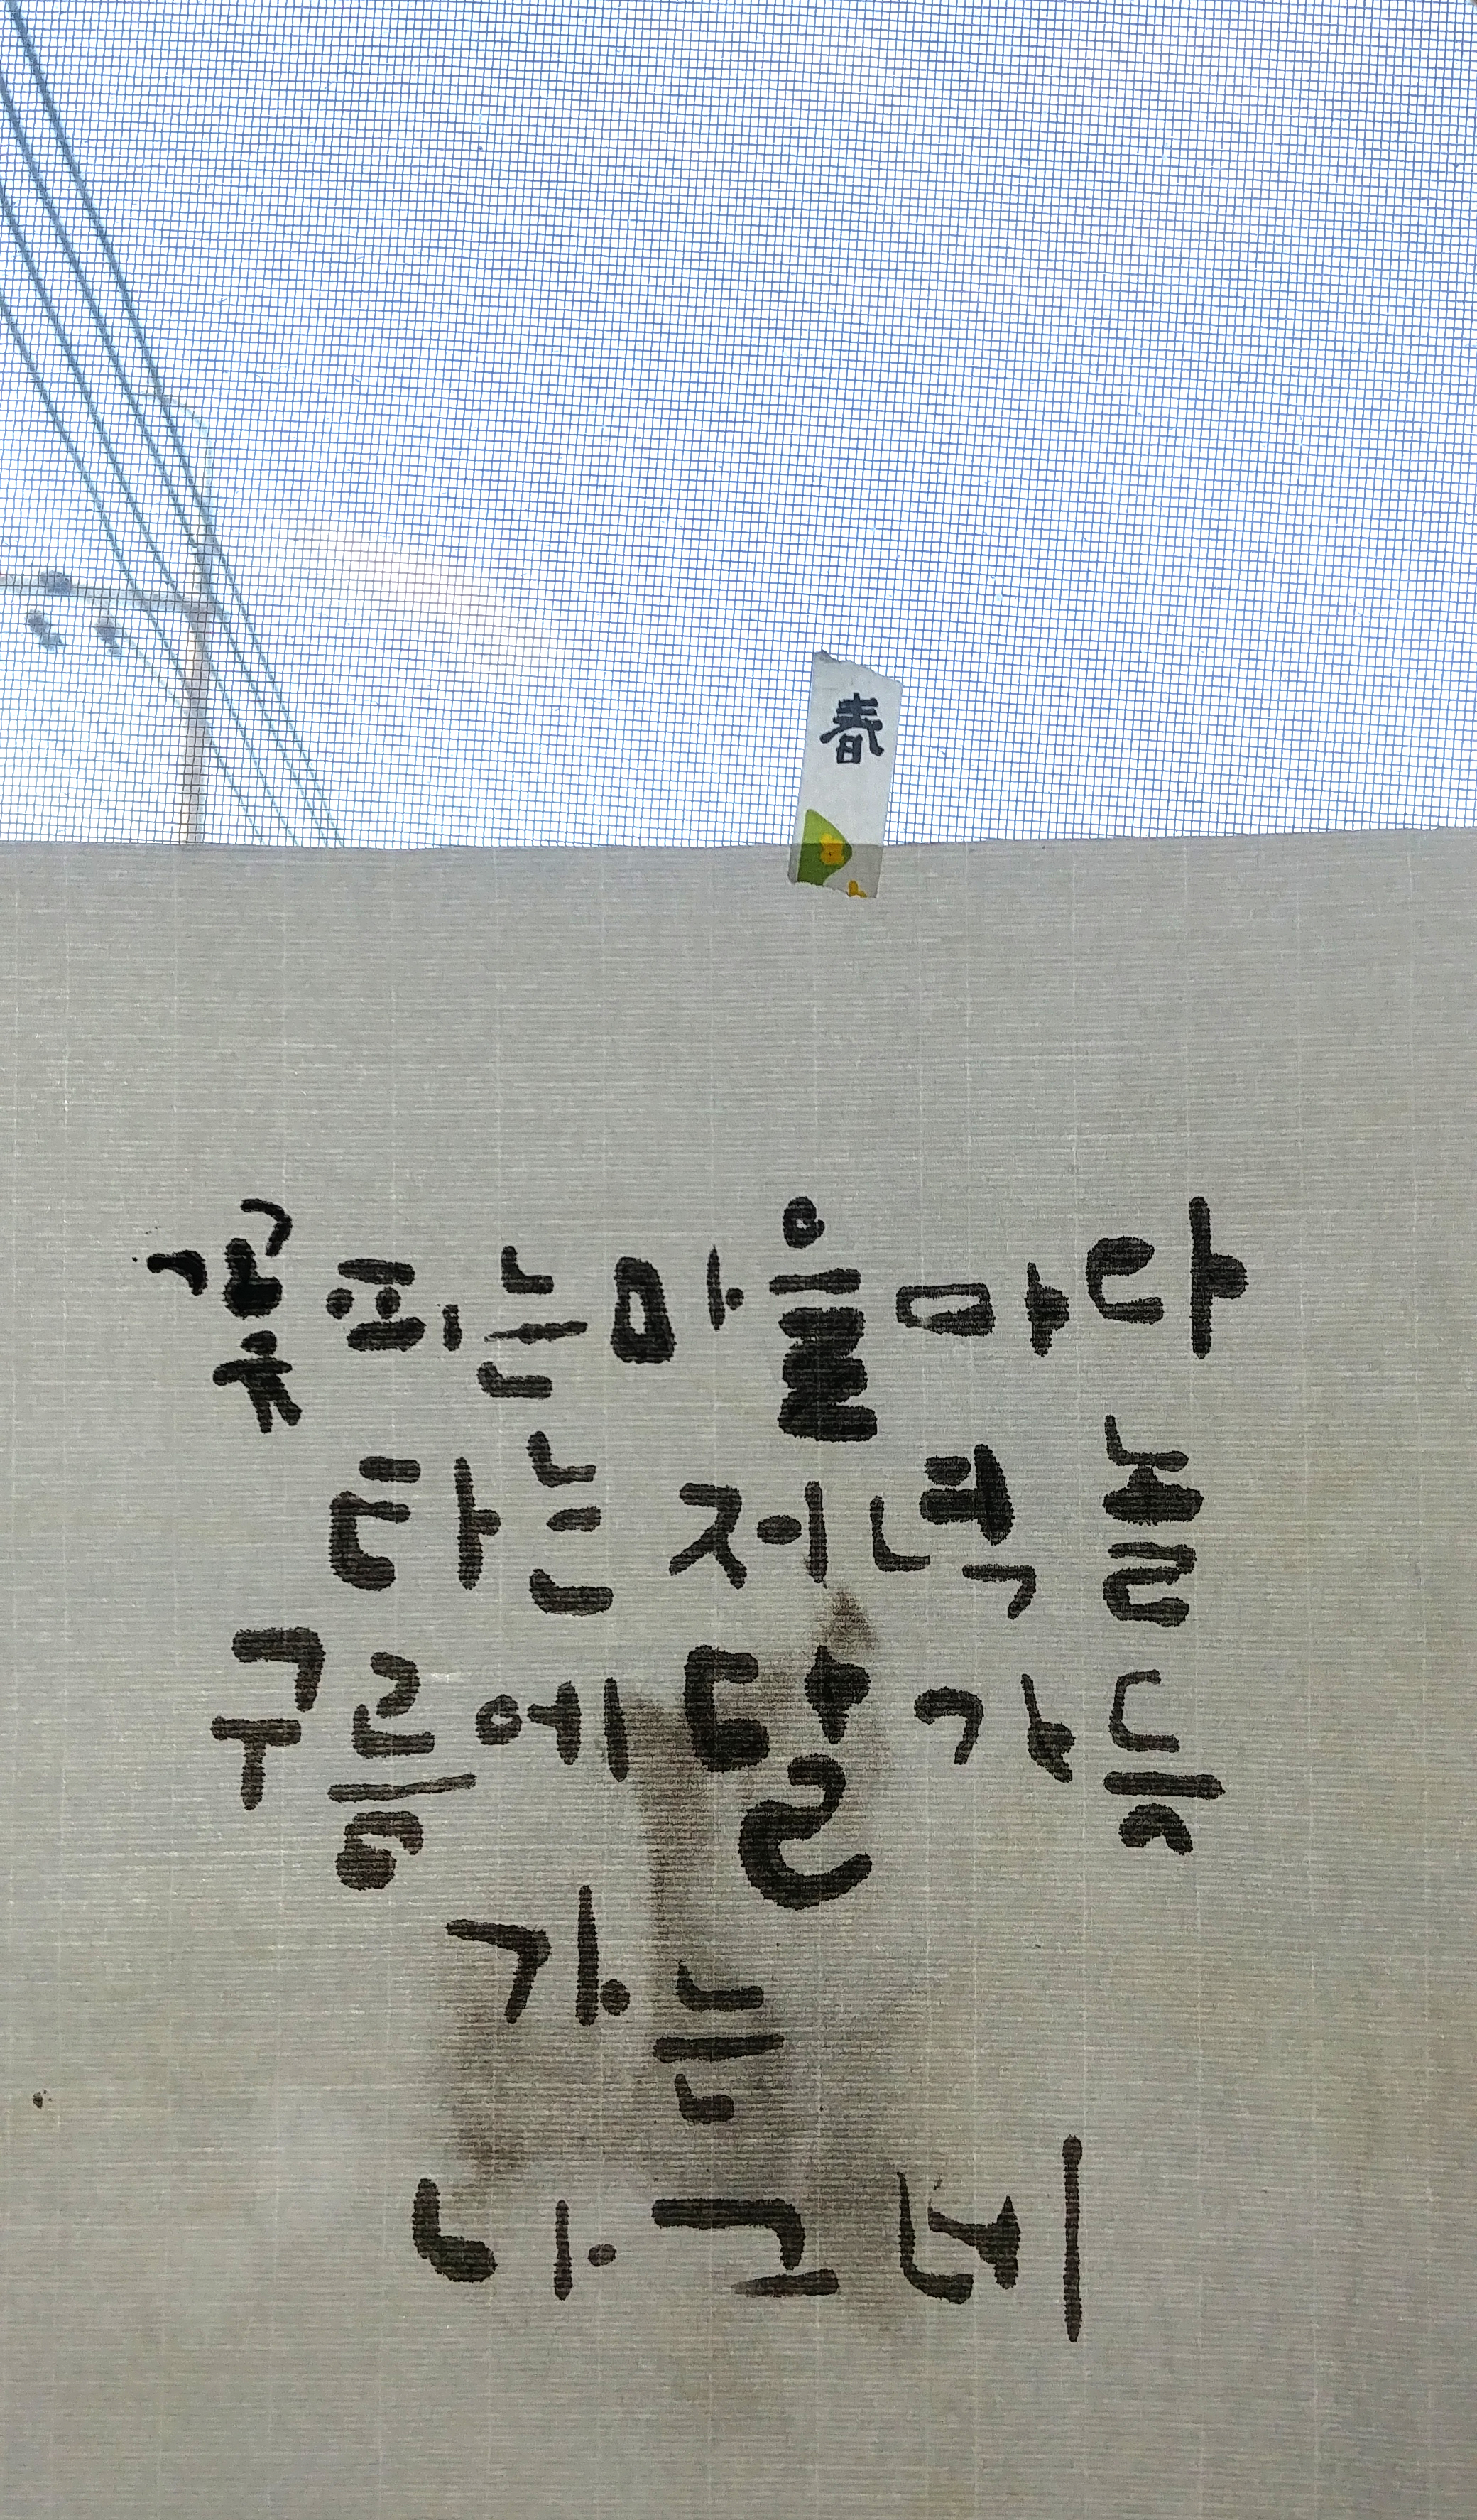 春
꽃피는마을마다
타는 저녁놀
구름에 달가듯
가는
나그네